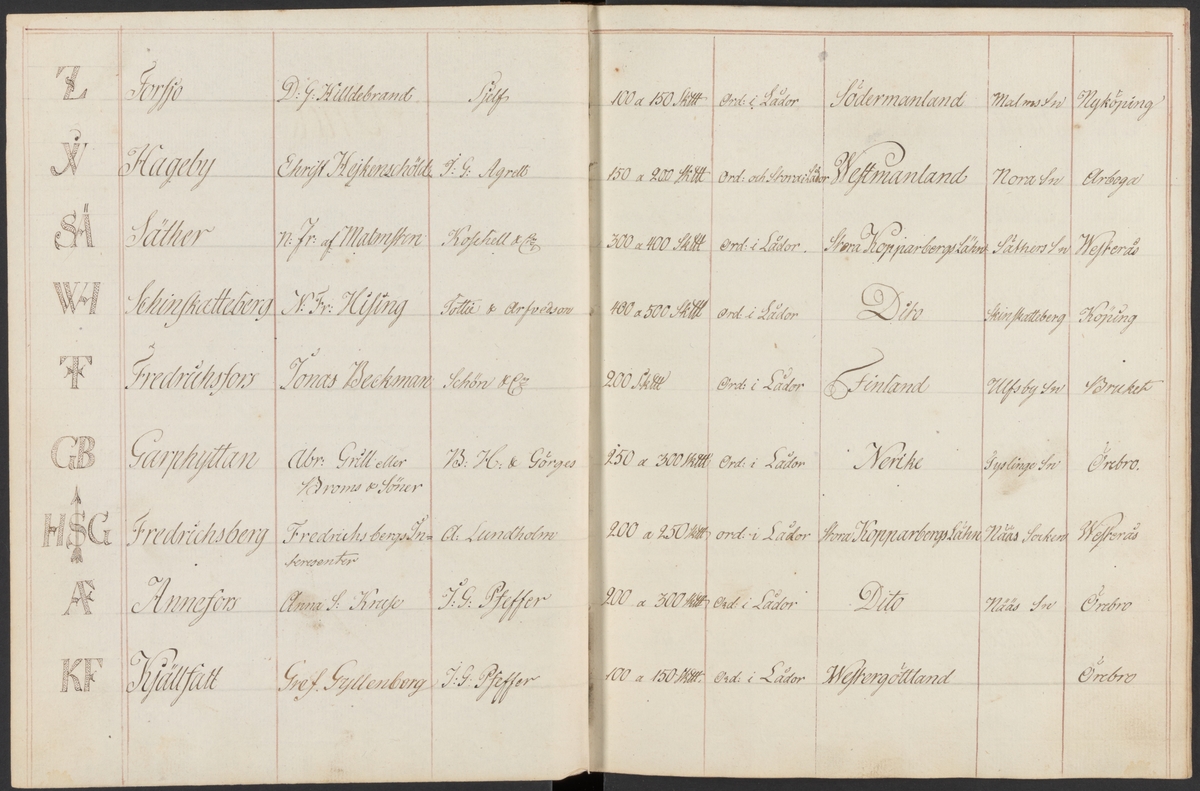 Z Forssjo D: G: Hilldebrand Sjelf 100 a 150 Sk℔tt Ord: i Lådor Södermanland Malms Sn Nyköping
Hageby Christ Hejkenschöld J: G: Agrell 150 a 200 Sk℔tt Ord: och Stora i Lådor Westmanland Nora Sn Arboga
SÄ Säther N: Fr: af Malmsten Koschell & C: 300 a 400 Sk℔tt Ord: i Lådor Stora Kopparbergs Lähn Säthers Sn Westerås
WH Schinskatteberg N: Fr: Hising Tottie & Arfvedson 400 a 500 Sk℔tt Ord: i Lådor Dito Skinskatteberg Köping
Fredrichsfors Jonas Beckman Schön & C: 200 Sk℔tt Ord: i Lådor Finland Ulfsby Sn Bruket
GB Garphyttan Abr: Grill eller B: H: & Görges 250 a 300 Sk℔tt Ord: i Lådor Nerike Tyslinge Sn Örebro.
Broms & Söner
HSG Fredrichsberg Fredrichsbergs In= A: Lundholm 200 a 250 Sk℔tt ord: i Lådor Stora Kopparbergs Lähn Nääs Socken Westerås
teressenter
AF Annefors Anna S: Kruse J: G: Pfeffer 200 a 300 Sk℔tt Ord: i Lådor Dito Nääs Sn Örebro
KF Kjällfall Gref. Gyllenberg J: G: Pfeffer 100 a 150 Sk℔tt. Ord: i Lådor Westergöttland Örebro